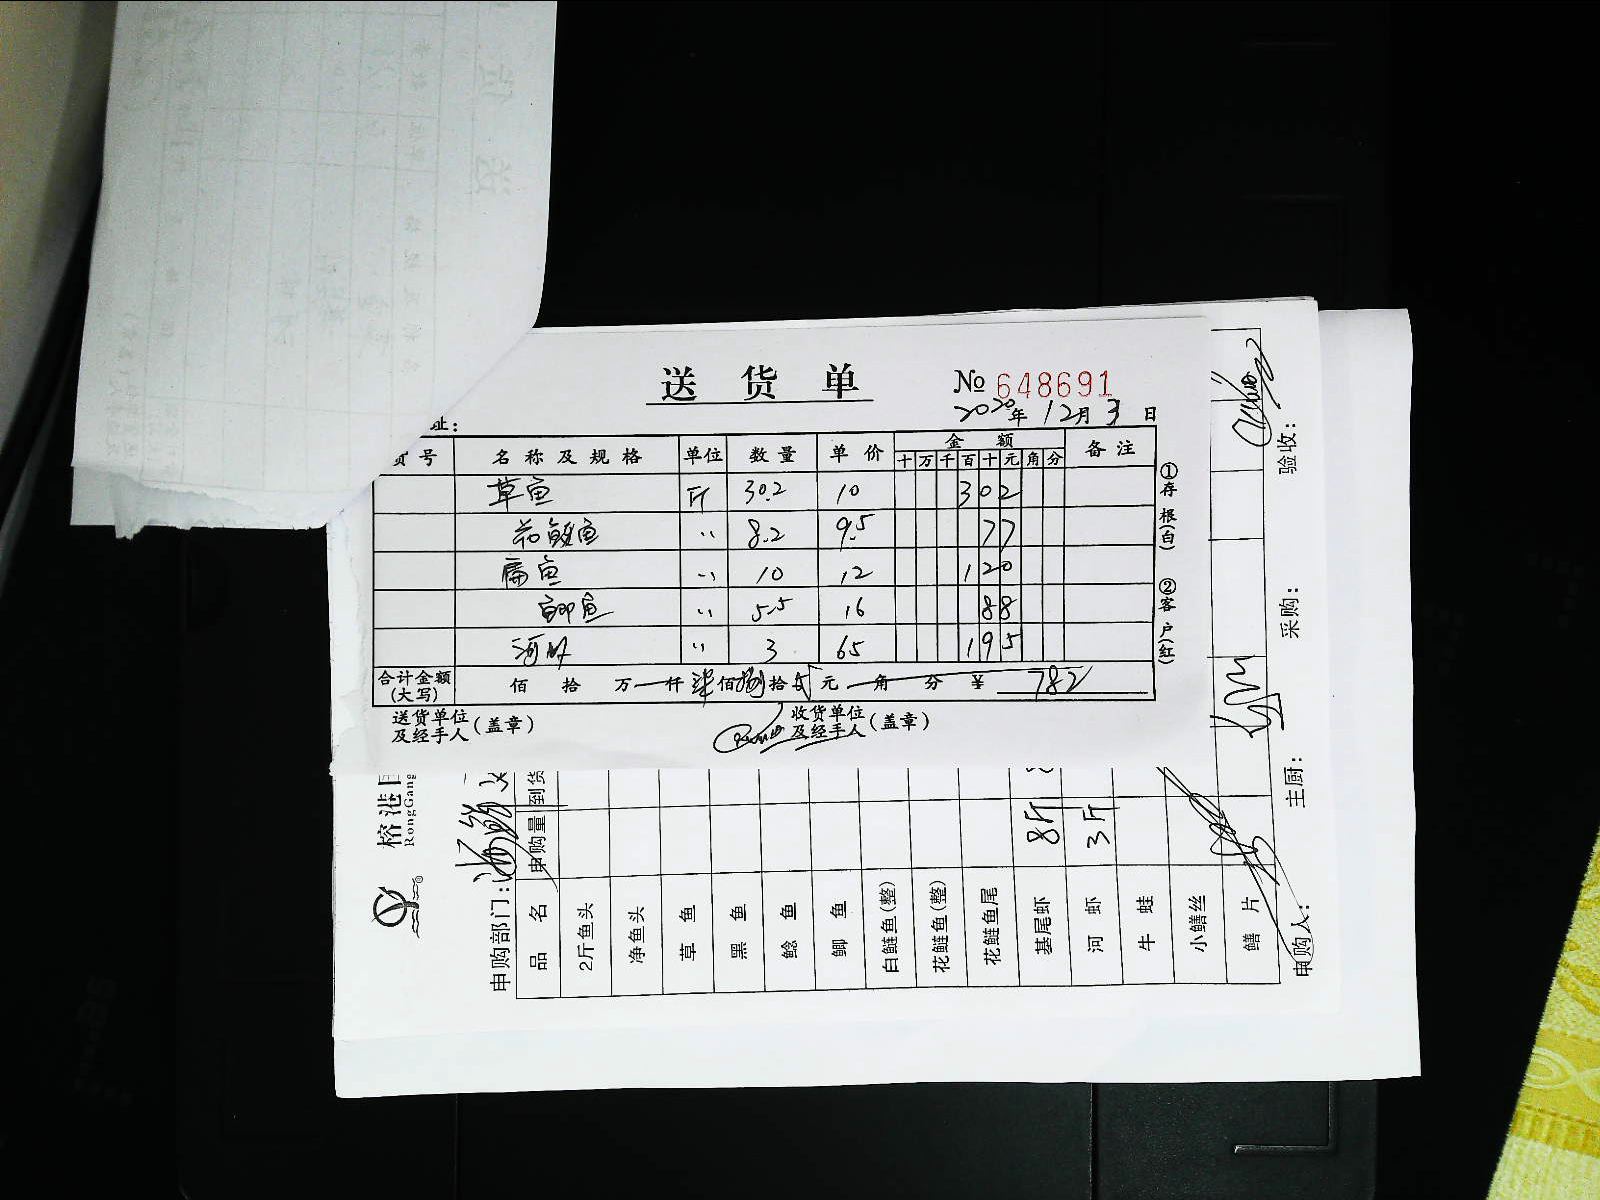 送货单
№ 648691
2020年12月3日
址:
货号 名称及规格 单位 数量 单价 金额 备注
十 万 千 百 十 元 角 分
草鱼 斤 30.2 10 302
花鲢鱼 〃 8.2 9.5 77
扁鱼 〃 10 12 120
鲫鱼 〃 5.5 16 88
河虾 〃 3 65 195
合计金额(大写) 佰 拾 万 仟 柒佰捌拾贰元 角 分 ¥ 782
送货单位及经手人(盖章)
收货单位及经手人(盖章)
①存根(白) ②客户(红)
榕港
RongGang
申购部门:
品名 申购量 到货
2斤鱼头
净鱼头
草鱼
黑鱼
鲶鱼
鲫鱼
白鲢鱼(整)
花鲢鱼(整)
花鲢鱼尾
基尾虾 8斤
河虾 3斤
牛蛙
小鳝丝
鳝片
申购人: 主厨: 采购: 验收: